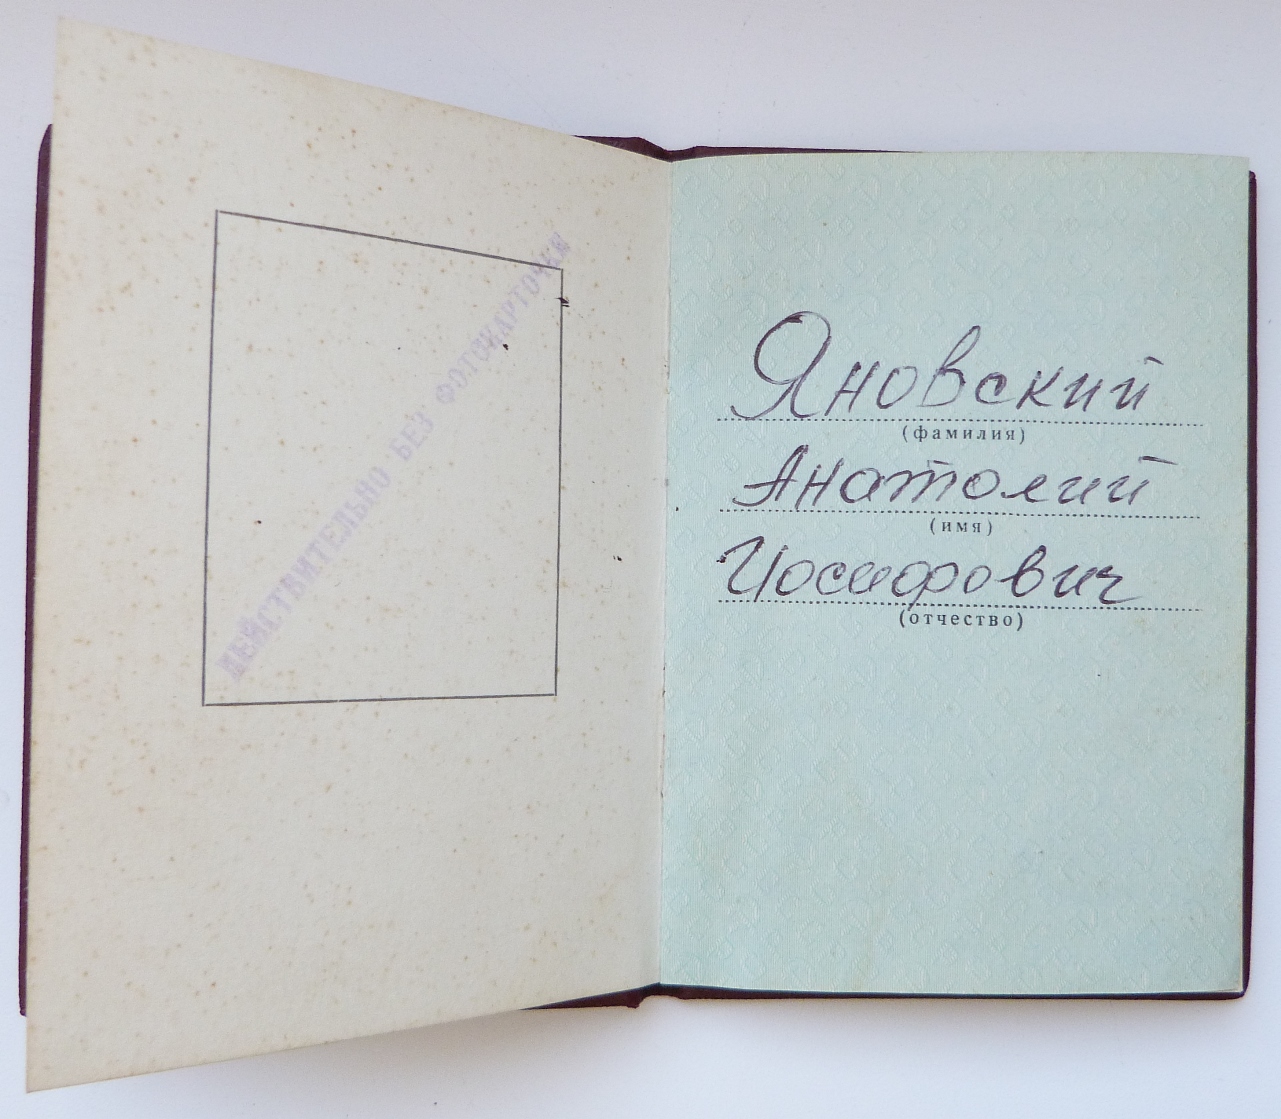 ДЕЙСТВИТЕЛЬНО БЕЗ ФОТОКАРТОЧКИ
Яновский
(фамилия)
Анатолий
(имя)
Иосифович
(отчество)